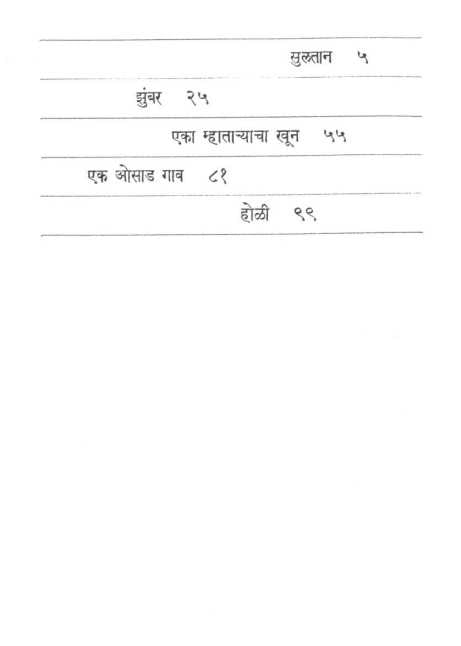 सुलतान ५
झुंबर २५
एका म्हाताऱ्याचा खून ५५
एक ओसाड गाव ८१
होळी ९९